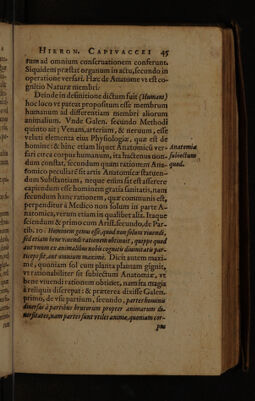 HIERON. CAPIVACCEI 45
rum ad omnium conseruationem conferunt.
Siquidem præstat organum in actu, secundo in
operatione versari. Hæc de Anatome vt est co-
gnitio Naturæ membri.
Deinde in definitione dictum fuit (Humani)
hoc loco vt pateat propositum esse membrum
humanum ad differentiam membri aliorum
animalium. Vnde Galen. secundo Methodi
quinto ait; Venam, arteriam, & neruum, esse
veluti elementa eius Physiologiæ, quæ est de
homine: & hinc etiam liquet Anatomicũ ver-
sari circa corpus humanum, ita hactenus non-
Anatomiæ
subiectum
quod.
dum constat, secundum quam rationem Ana-
tomico peculiare sit artis Anatomicæ statuen-
dum
capiendum esse hominem gratia sanitatis, nam
secundum hanc rationem, quæ communis est,
perpenditur à Medico non solum in parte A-
natomica, verum etiam in qualibet alia. Itaque
sciendum & primo cum Arist. secundo, de Par-
tib. 10. Hominem genus esse, quod non solum viuendi,
sed etiam bene viuendi rationem obtineat, quippe quod
aut vnum ex animalibus nobis cognitis diuinitatis par-
ticeps sit, aut omnium maxime. Dicit autem maxi-
mè, quoniam sol cum planta plantam gignit,
vt rationabiliter sit subiectum Anatomiæ, vt
bene viuendi rationem obtinet, nam ita magis
à reliquis discrepat: & præterea dixisse Galen.
primo, de vsu partium, secundo, partes hominis
diuersas à partibus brutorum propter animarum di-
uersitates, nam partes sunt vtiles animæ, quoniam cor-
pus